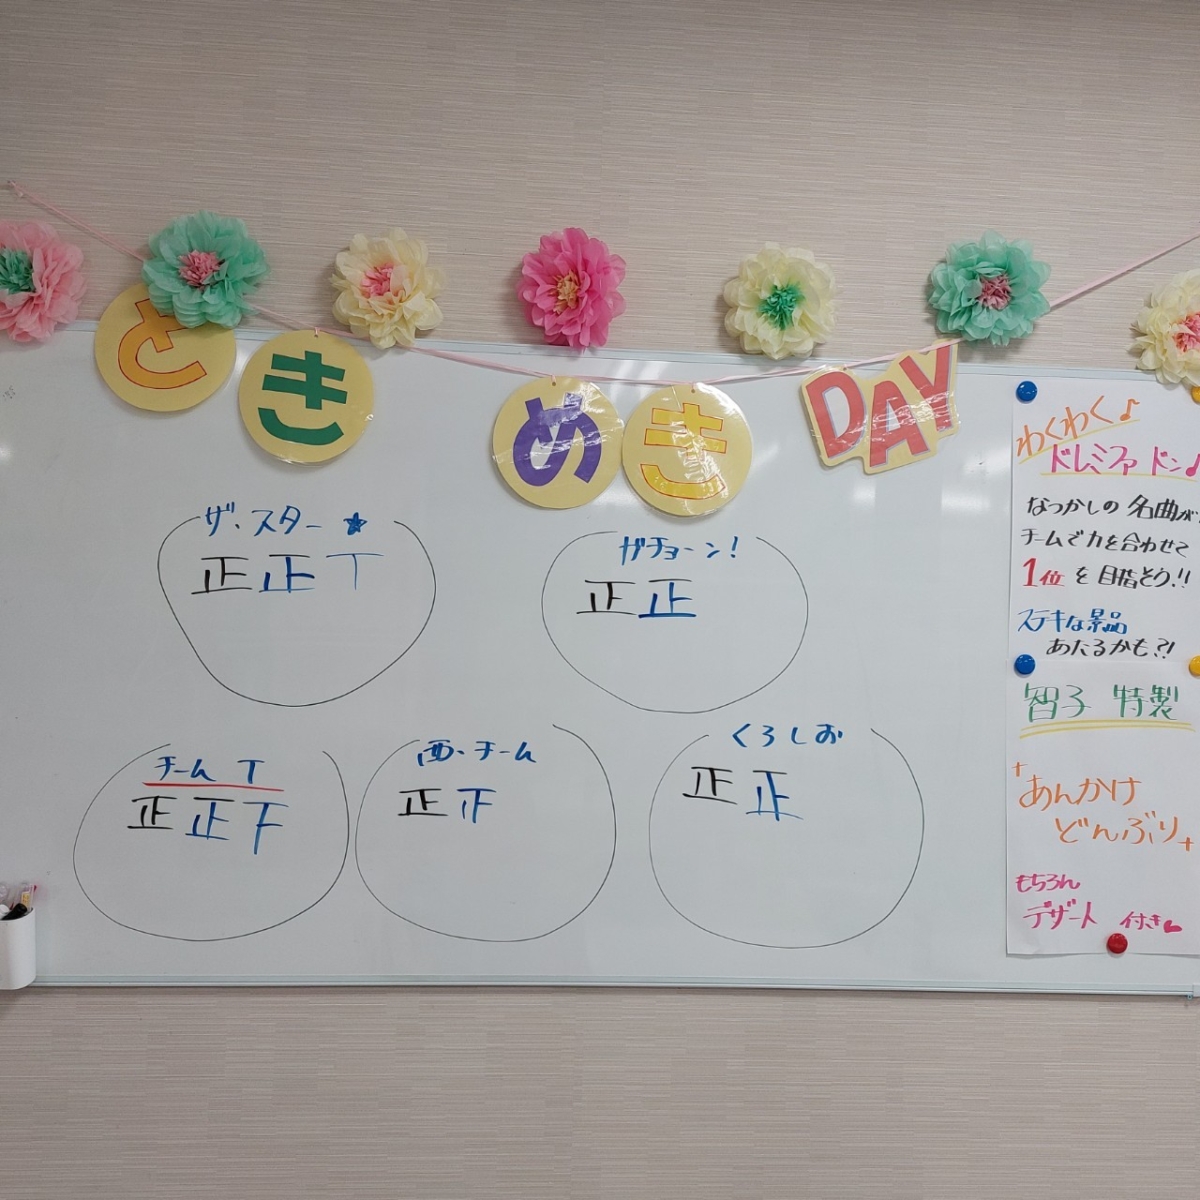 ときめきDAY
ザ・スター★
正正丅
ガチョーン!
正正
チームT
正正下
西・チーム
正下
くろしお
正正
わくわく♪
ドレミファドン♪
なつかしの名曲が
チームで力を合わせて
1位を目指そう!!
ステキな景品
あたるかも?!
智子 特製
あんかけ
どんぶり
もちろん
デザート 付き♥